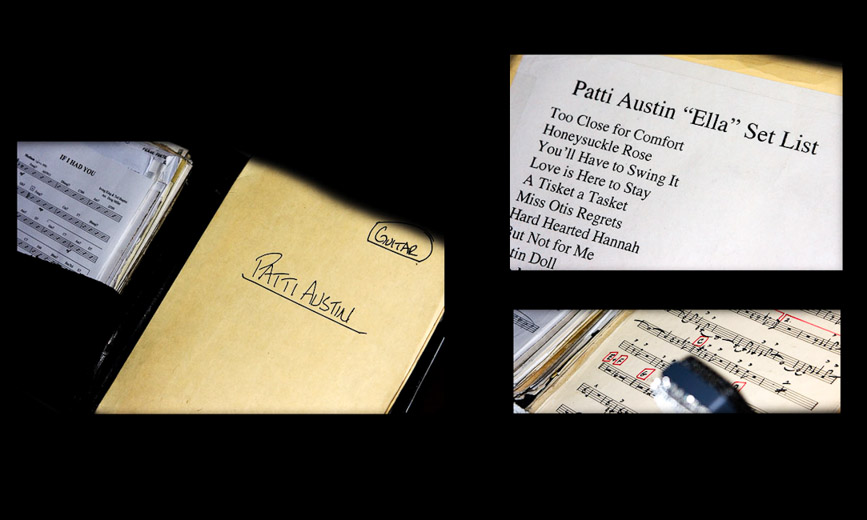 IF I HAD YOU
GUITAR
PATTI AUSTIN
Patti Austin “Ella” Set List
Too Close for Comfort
Honeysuckle Rose
You’ll Have to Swing It
Love is Here to Stay
A Tisket a Tasket
Miss Otis Regrets
Hard Hearted Hannah
But Not for Me
tin Doll